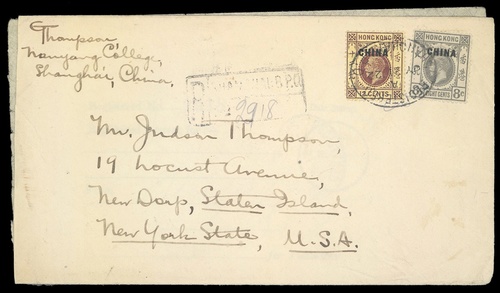 C Thompson
Nanyang College,
Shanghai, China.
HONG KONG
CHINA
12 CENTS
HONG KONG
CHINA
EIGHT CENTS 8c
B.P.O.
2918
Mr. Judson Thompson,
19 Locust Avenue,
New Dorp, Staten Island,
New York State, U.S.A.